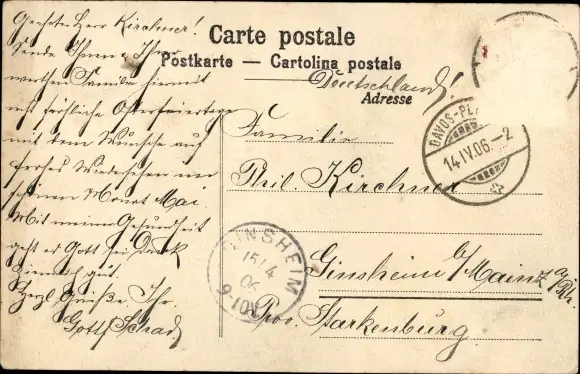 Geehrter Herr Kirchner!
Sende Ihnen u. Ihrer
werthen Familie hiermit
recht fröhliche Osterfeiertage
mit dem Wunsche auf
frohes Wiedersehen im
schönen Monat Mai
Mit meiner Gesundheit
geht es Gott sei Dank
ziemlich gut.
Herzl. Grüße Ihr
Gottf. Schrad
Carte postale
Postkarte — Cartolina postale
Deutschland!
Adresse
Familie
Phil. Kirchner
Ginsheim b/Mainz a/Rh.
Prov. Starkenburg.
DAVOS-PL
14.IV.06.-2
GINSHEIM
15/4
06
9-10V